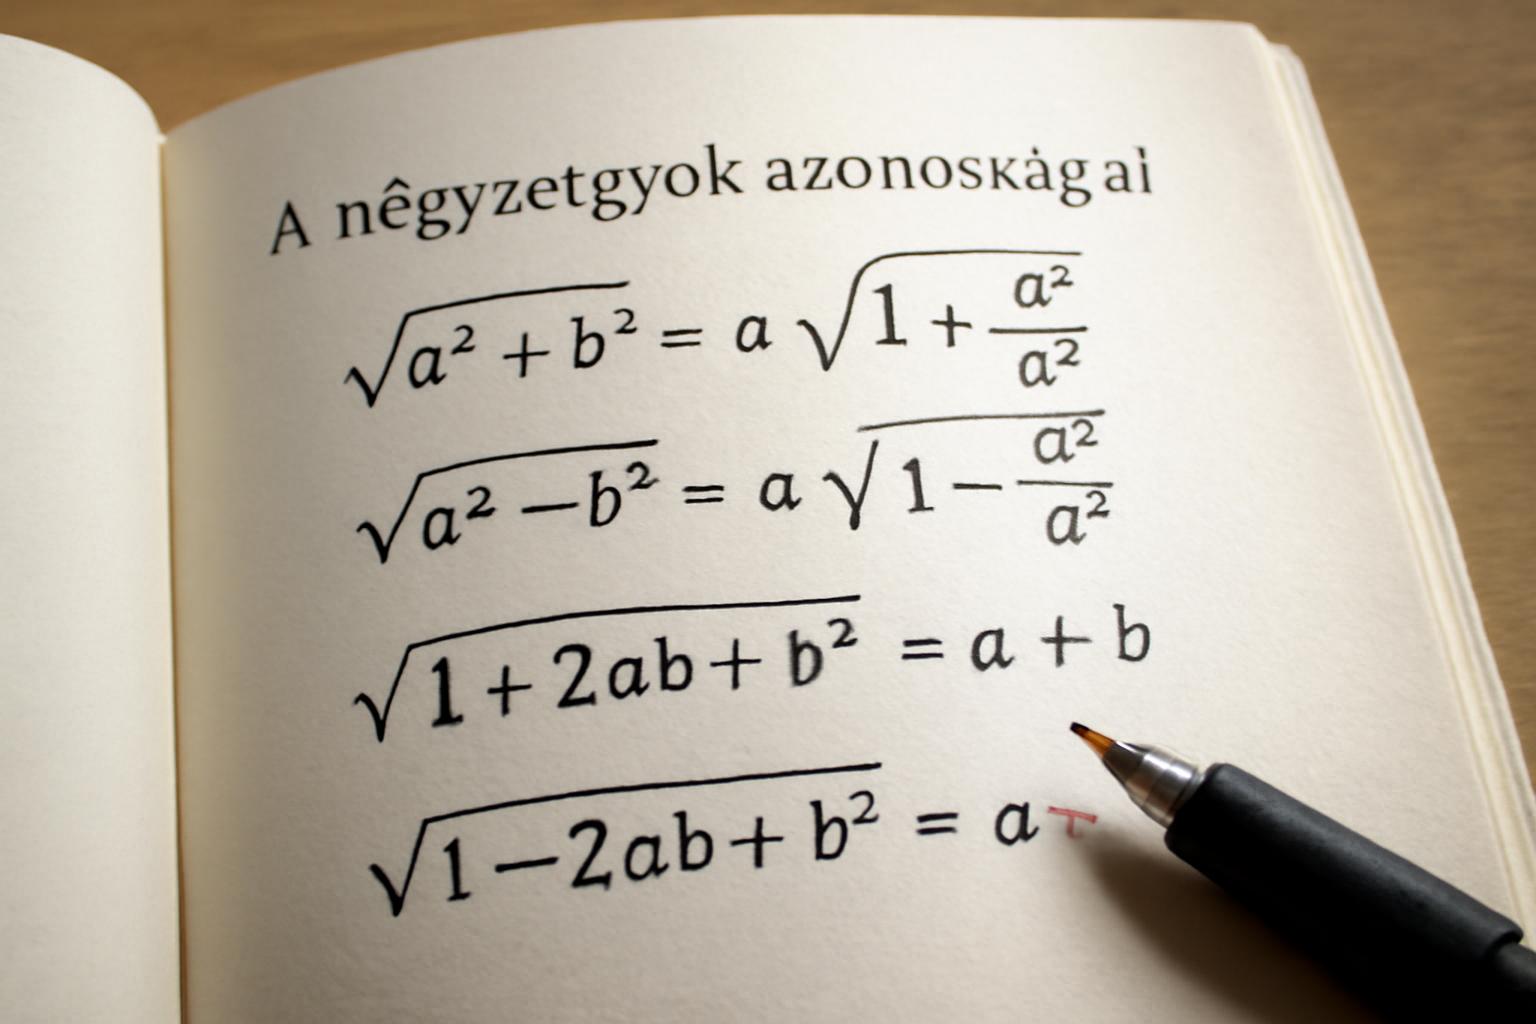 A nêgyzetgyok azonosкȧgaı̀
√(a² + b²) = a √(1 + a²/a²)
√(a² − b²) = a √(1 − a²/a²)
√(1 + 2ab + b²) = a + b
√(1 − 2ab + b²) = a